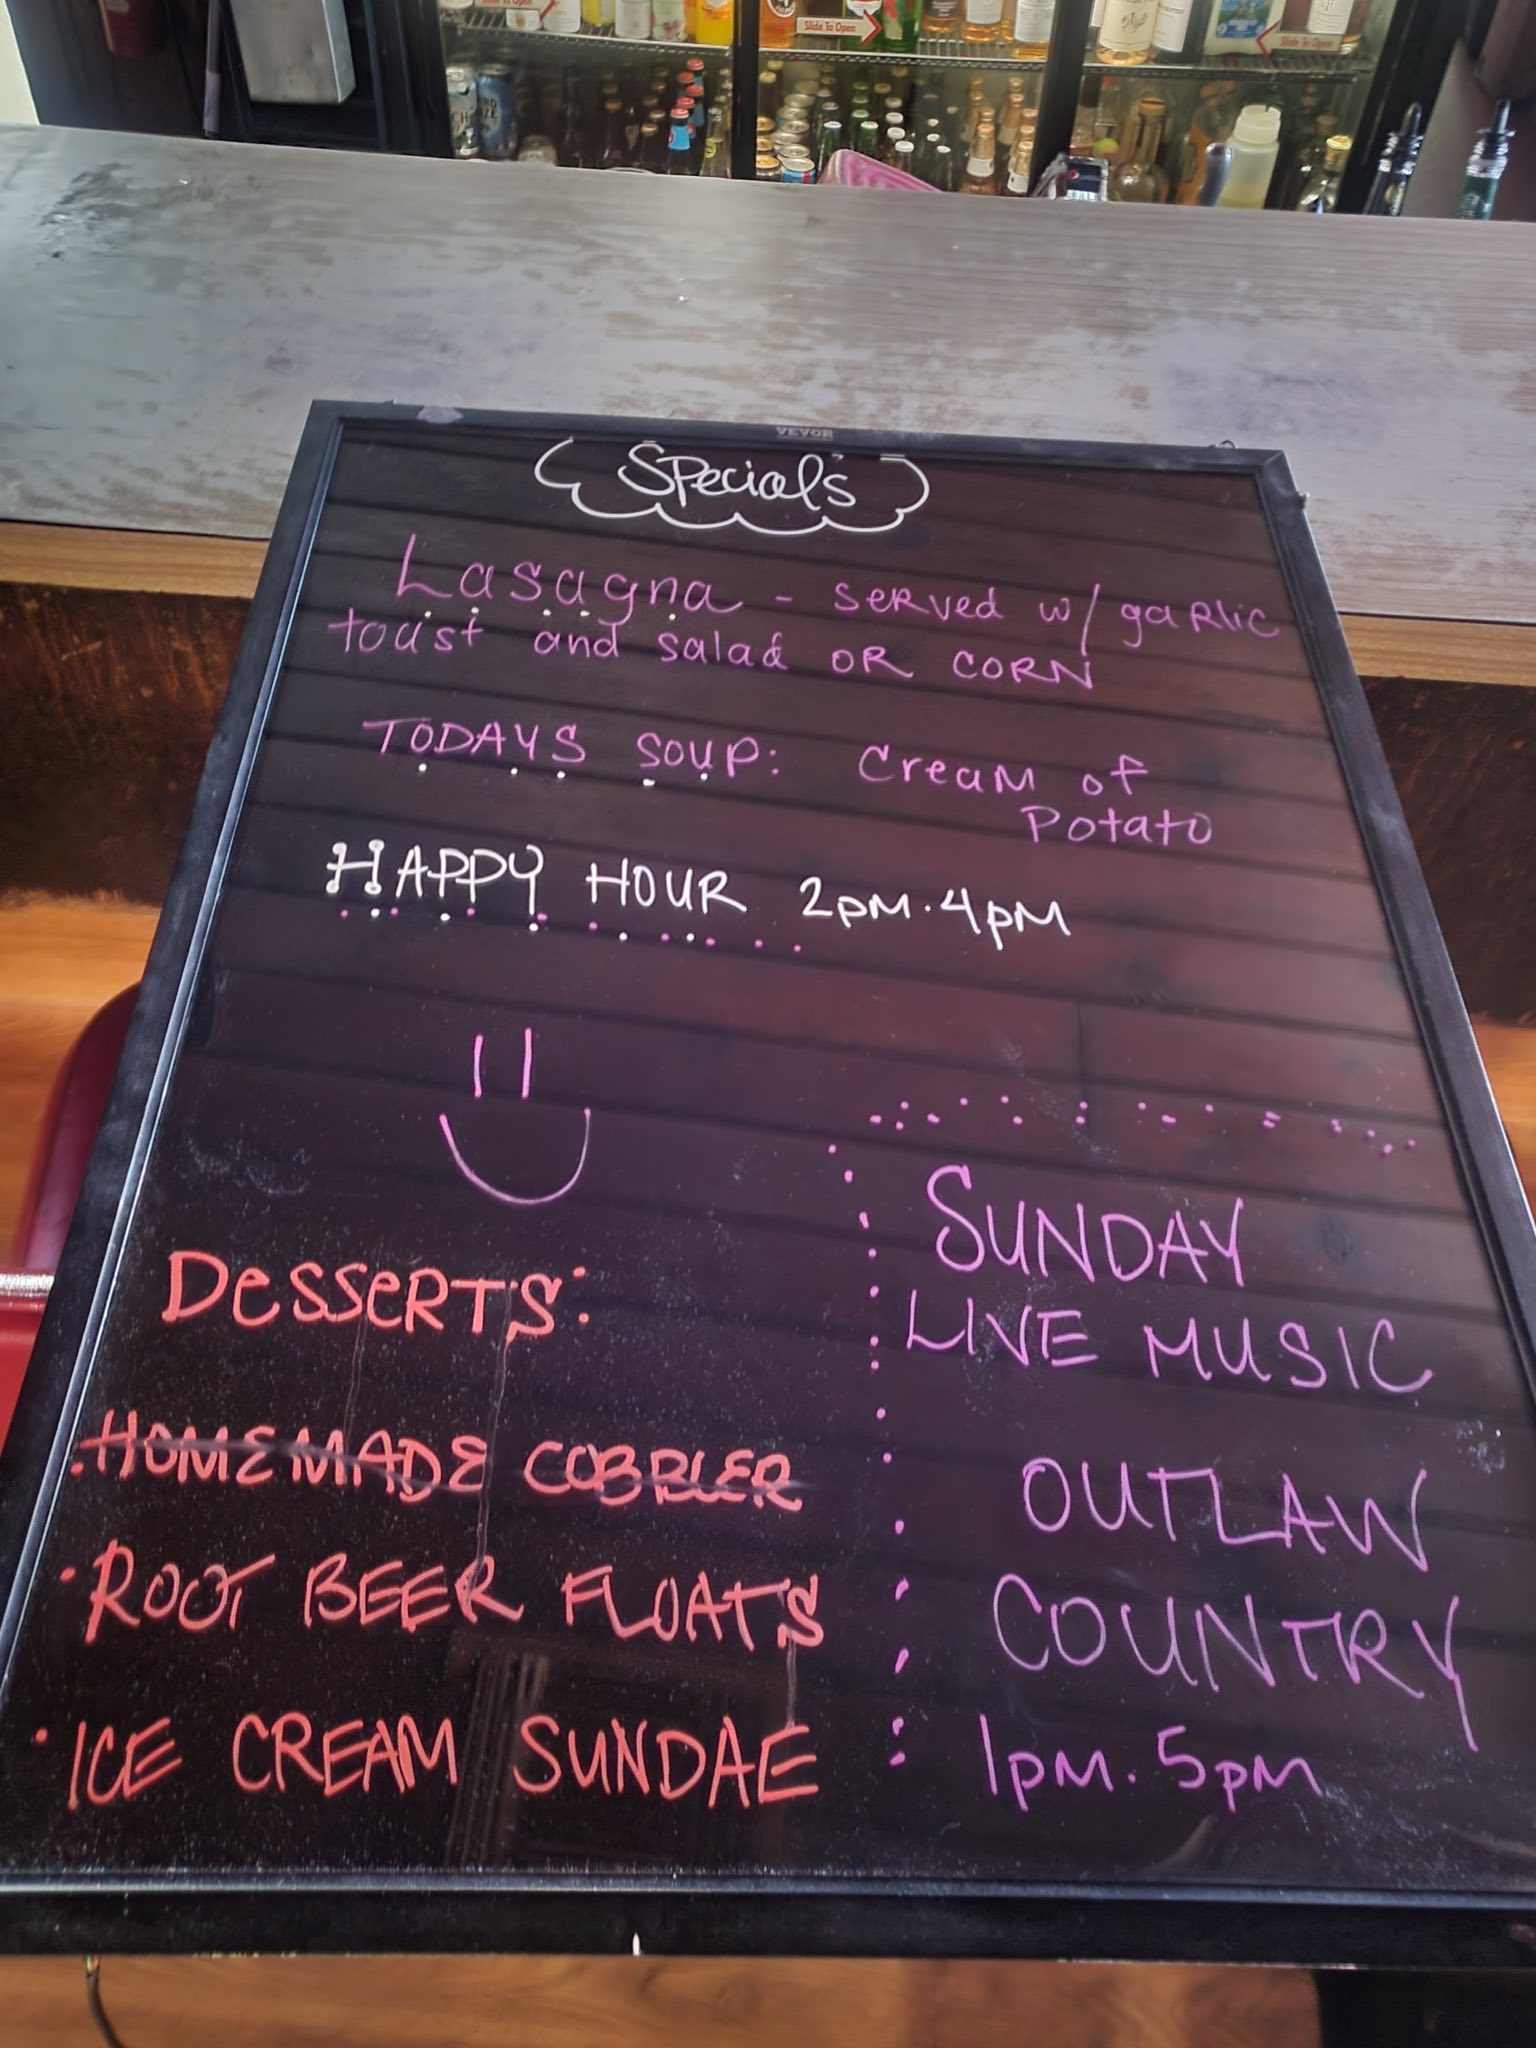 Slide To Open
Slide To Open
Slide To Open
VEVOR
Specials
Lasagna - served w/ garlic
toast and salad OR CORN
TODAYS SOUP: Cream of
Potato
HAPPY HOUR 2pm.4pm
SUNDAY
LIVE MUSIC
OUTLAW
COUNTRY
1pm.5pm
DESSERTS:
. HOMEMADE COBBLER
· ROOT BEER FLOATS
· ICE CREAM SUNDAE